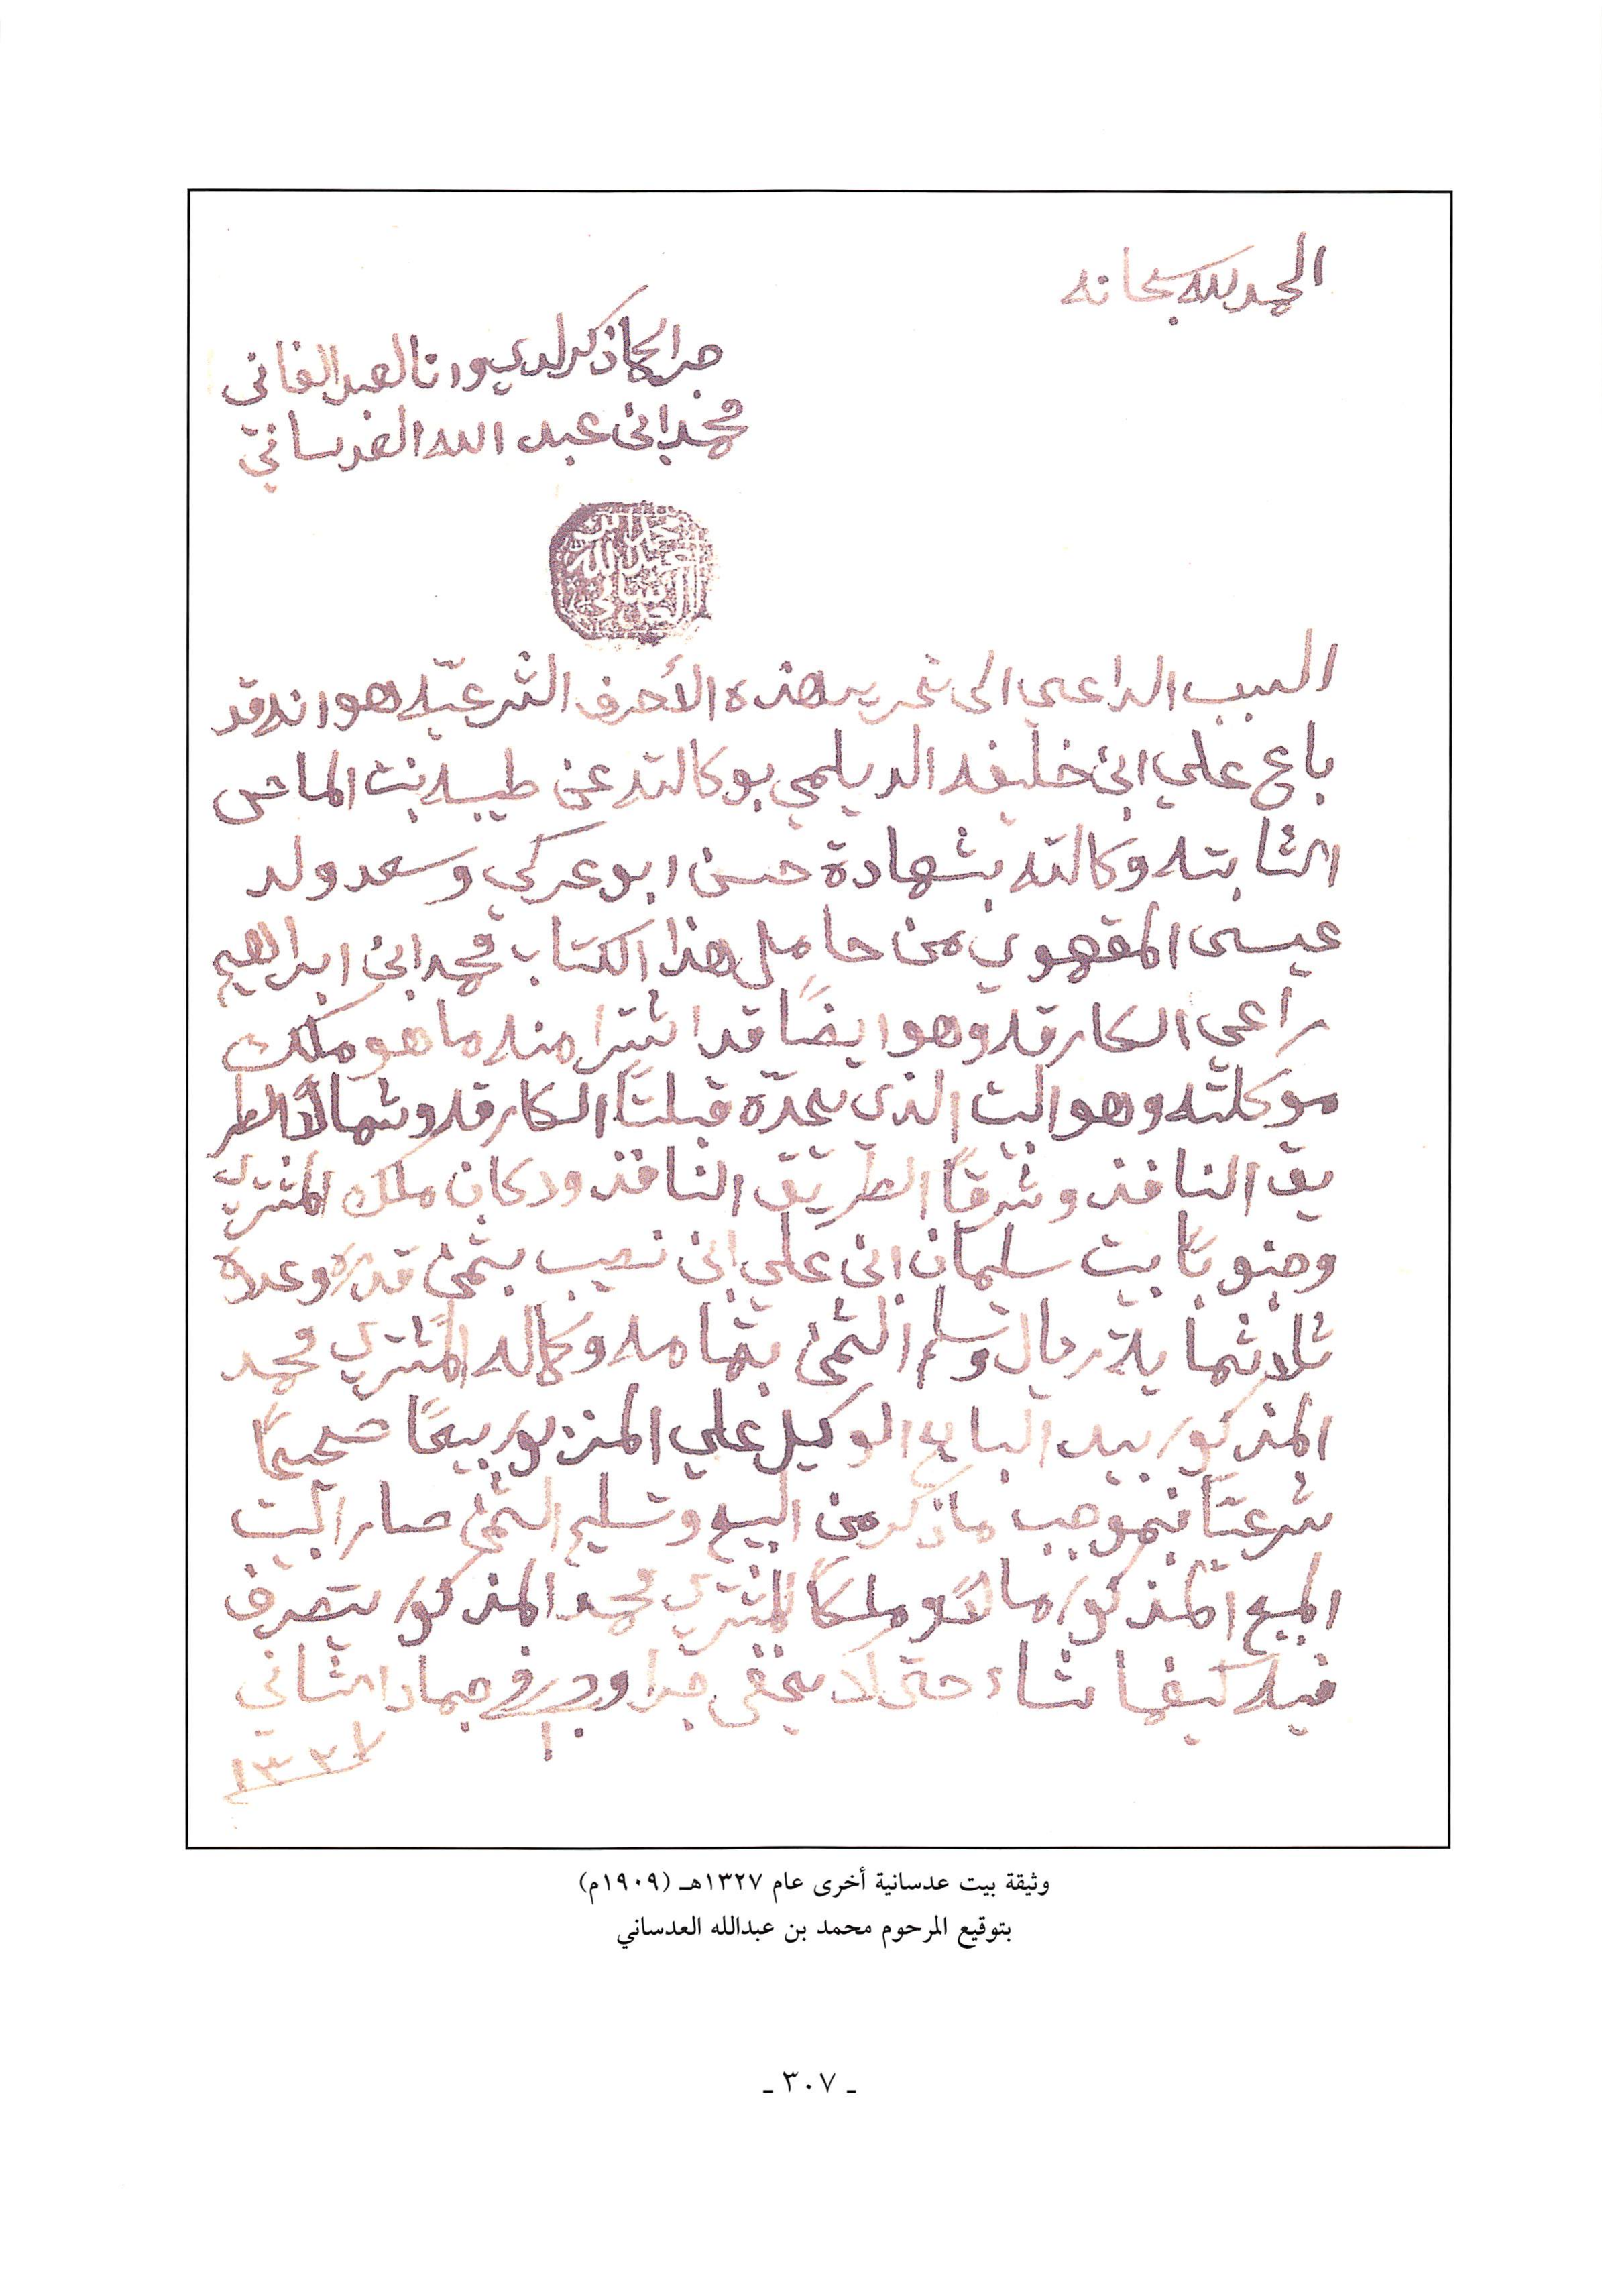 الحمد لله سبحانه
جرا لحماذكر لدي وانا العبد الفاني
محمد ابن عبد الله العدساني
محمد ابن
عبد الله
العدساني
السبب الداعي الى تحرير هذه الأحرف الشرعيّه هو انه قد
باع علي ابن خليفه الديلمي بوكالته عن طيبه بنت الماص
الثابته وكالته بشهادة حسن ابو عركي وسعد ولد
عيسى المقهوي من حامل هذا الكتاب محمد ابن ابراهيم
راعي الكارقه وهو ايضًا قد اشترا منه ما هو ملك
موكلته وهو البيت الذي يحدّه قبلتًا الكارقه وشمالاً الطر
يق النافذ وشرقًا الطريق النافذ ودكان ملك المشتري
وجنوبًا بيت سليمان ابن علي ابن نصيب بثمن قدره وعده
ثلاثماية ريال وتسلم الثمن بتمامه وكماله المشتري محمد
المذكور بيد البايع الوكيل علي المزبور بيعًا صحيحًا
شرعيًا فبموجب ماذكر من البيع وتسليم الثمن صار البيت
المبيع المذكور مالاً وملكًا للمشتري محمد المذكور يتصرف
فيه كيفما شاء حتى لا يخفى جرا وحرر في جمادا الثاني
١٣٢٧
وثيقة بيت عدسانية أخرى عام ١٣٢٧هـ (١٩٠٩م)
بتوقيع المرحوم محمد بن عبدالله العدساني
ـ ٣٠٧ ـ